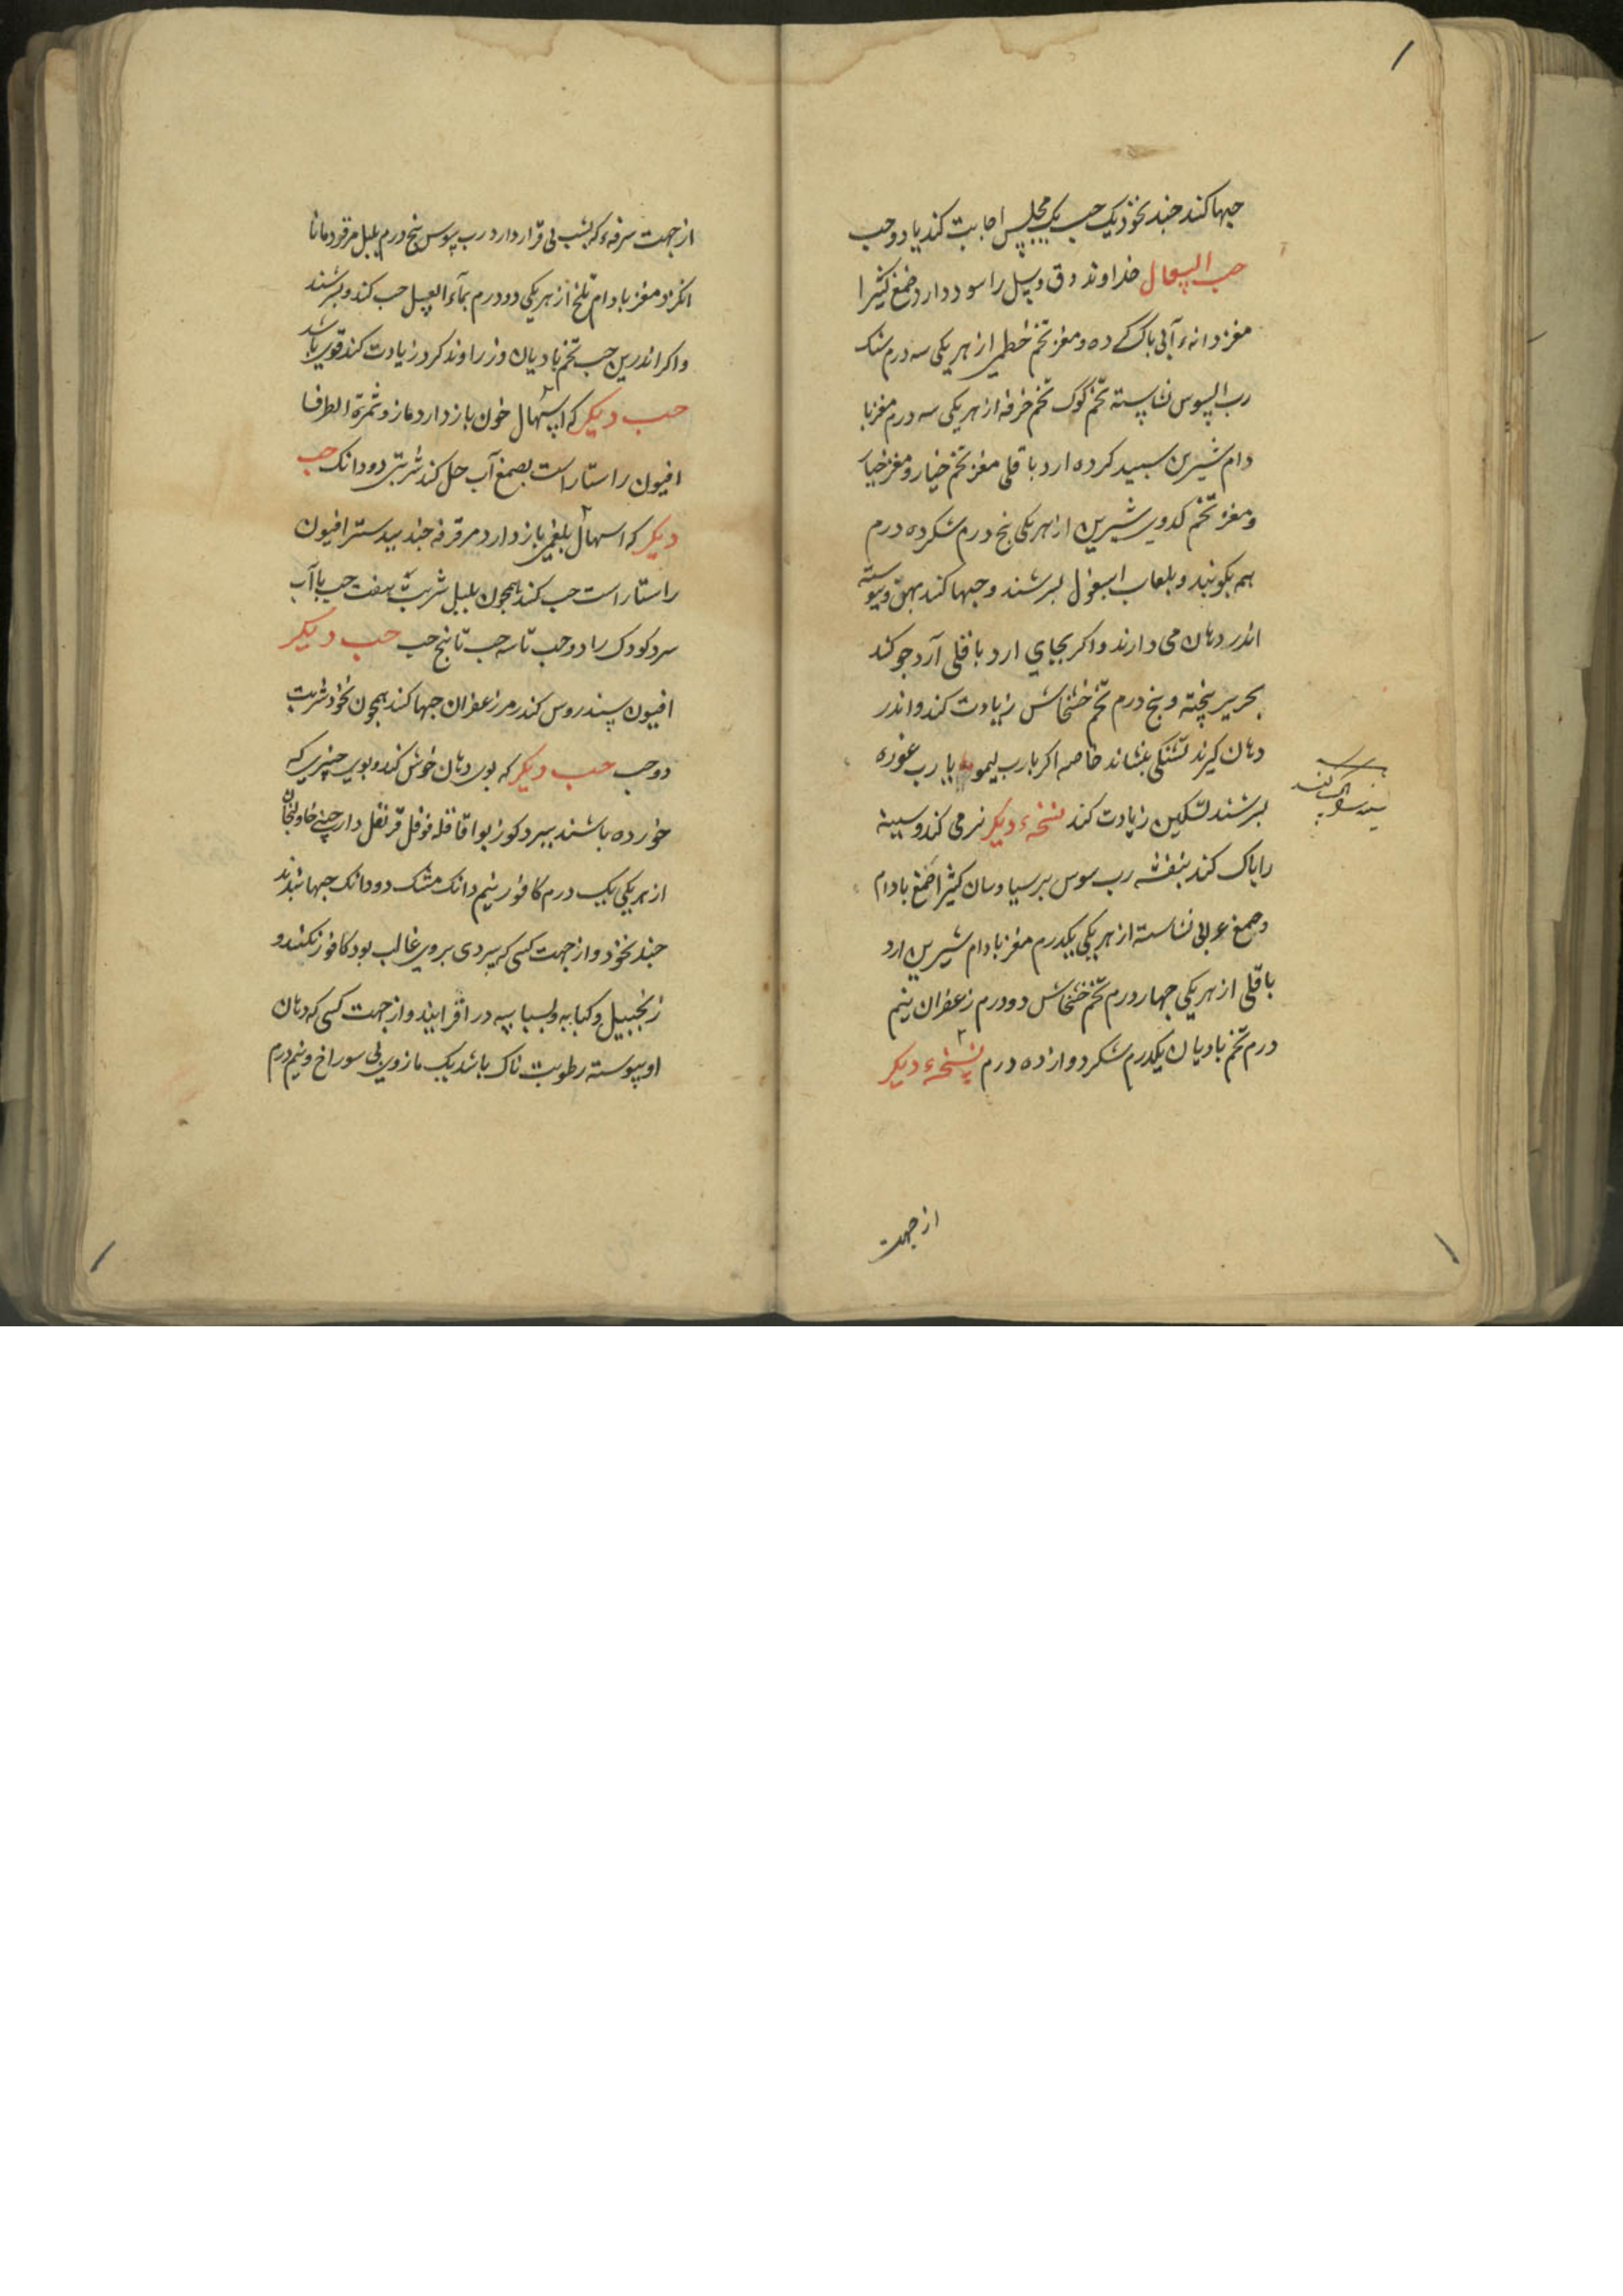 حبها کند چند نخود یک حب یک مجلس اجابت کند یا دو حب
حب السعال خداوند دق و سل را سود دارد صمغ کثیرا
مغز دانهٔ آبی پاک کرده و مغز تخم خطمی از هر یکی سه درم سنک
رب السوس نشاسته تخم کوک تخم خرفه از هر یکی سه درم مغز با
دام شیرین سبید کرده ارد باقلی مغز تخم خیار و مغز خیار
و مغز تخم کدوی شیرین از هر یکی پنج درم شکر ده درم
بهم بکوبند و بلعاب اسبغول بسرشند و حبها کند پهن و پیوسته
اندر دهان می دارند و اکر بجای ارد باقلی آرد جو کند
بحریر پخته و پنج درم تخم خشخاش زیادت کند و اندر
دهان کیرند تشنکی بنشاند خاصه اکر با رب لیمو یا با رب غوره
بسرشند تسکین زیادت کند نسخهٔ دیکر نرمی کند و سینه
را پاک کند بنفشه رب سوس پرسیاوسان کثیرا صمغ بادام
و صمغ عربی نشاسته از هر یکی یکدرم مغز بادام شیرین ارد
باقلی از هر یکی چهار درم تخم خشخاش دو درم زعفران نیم
درم تخم بادیان یکدرم شکر دوازده درم نسخهٔ دیکر
از جهت
از جهت سرفهٔ که بشب بی قرار دارد رب سوس پنج درم پلپل مر قردمانا
انکزد و مغز بادام تلخ از هر یکی دو درم بماء العسل حب کند و بسرشند
و اکر اندرین حب تخم بادیان و زراوند کرد زیادت کند قوی باشد
حب دیکر که اسهال خون باز دارد مازو ثمرة الطرفا
افیون راستاراست بصمغ آب حل کند شربتی دو دانک حب
دیکر که اسهال بلغمی باز دارد مر قرفه جندبیدستر افیون
راستاراست حب کند همچون پلپل شربت هفت حب با آب
سرد کودک را دو حب تا سه حب تا پنج حب حب دیکر
افیون سندروس کندر مر زعفران حبها کند همچون نخود شربت
دو حب حب دیکر که بوی دهان خوش کند و بوی چیزی که
خورده باشند ببرد کوزبوا قاقله فوفل قرنفل دارچینی خاولنجان
از هر یکی یک درم کافور نیم دانک مشک دو دانک حبها بندند
چند نخود و از جهت کسی که سردی بروی غالب بود کافور نکنند و
زنجبیل و کبابه و بسباسه در افزایند و از جهت کسی که دهان
او پیوسته رطوبت ناک باشد یک مازوی بی سوراخ و نیم درم